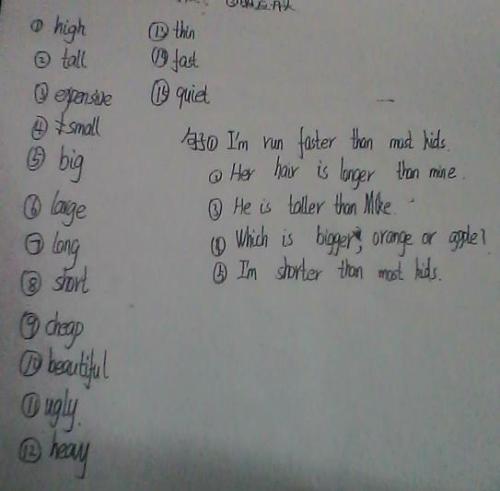 ① high
② tall
③ expensive
④ small
⑤ big
⑥ large
⑦ long
⑧ short
⑨ cheap
⑩ beautiful
⑪ ugly
⑫ heavy
⑬ thin
⑭ fast
⑮ quiet
句子① I'm run faster than most kids.
② Her hair is longer than mine.
③ He is taller than Mike.
④ Which is bigger, orange or apple?
⑤ I'm shorter than most kids.